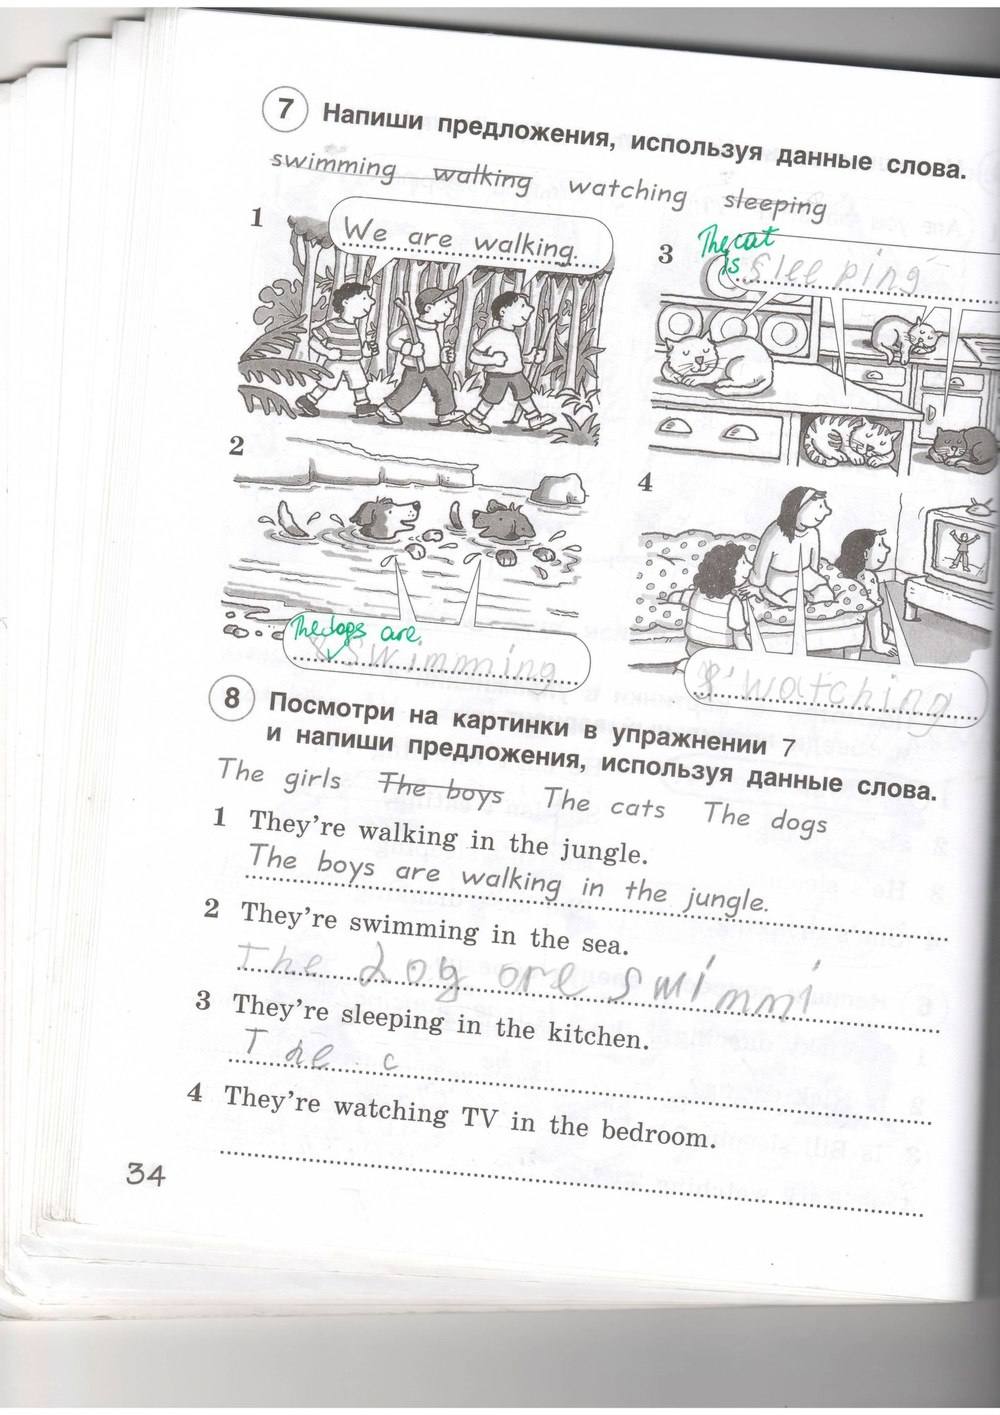 7 Напиши предложения, используя данные слова.
swimming walking watching sleeping
1 We are walking.
3 The cat
is sleeping
2
4
The dogs are
swimming
watching
8 Посмотри на картинки в упражнении 7
и напиши предложения, используя данные слова.
The girls The boys The cats The dogs
1 They're walking in the jungle.
The boys are walking in the jungle.
2 They're swimming in the sea.
The dog are swimmi
3 They're sleeping in the kitchen.
The c
4 They're watching TV in the bedroom.
34